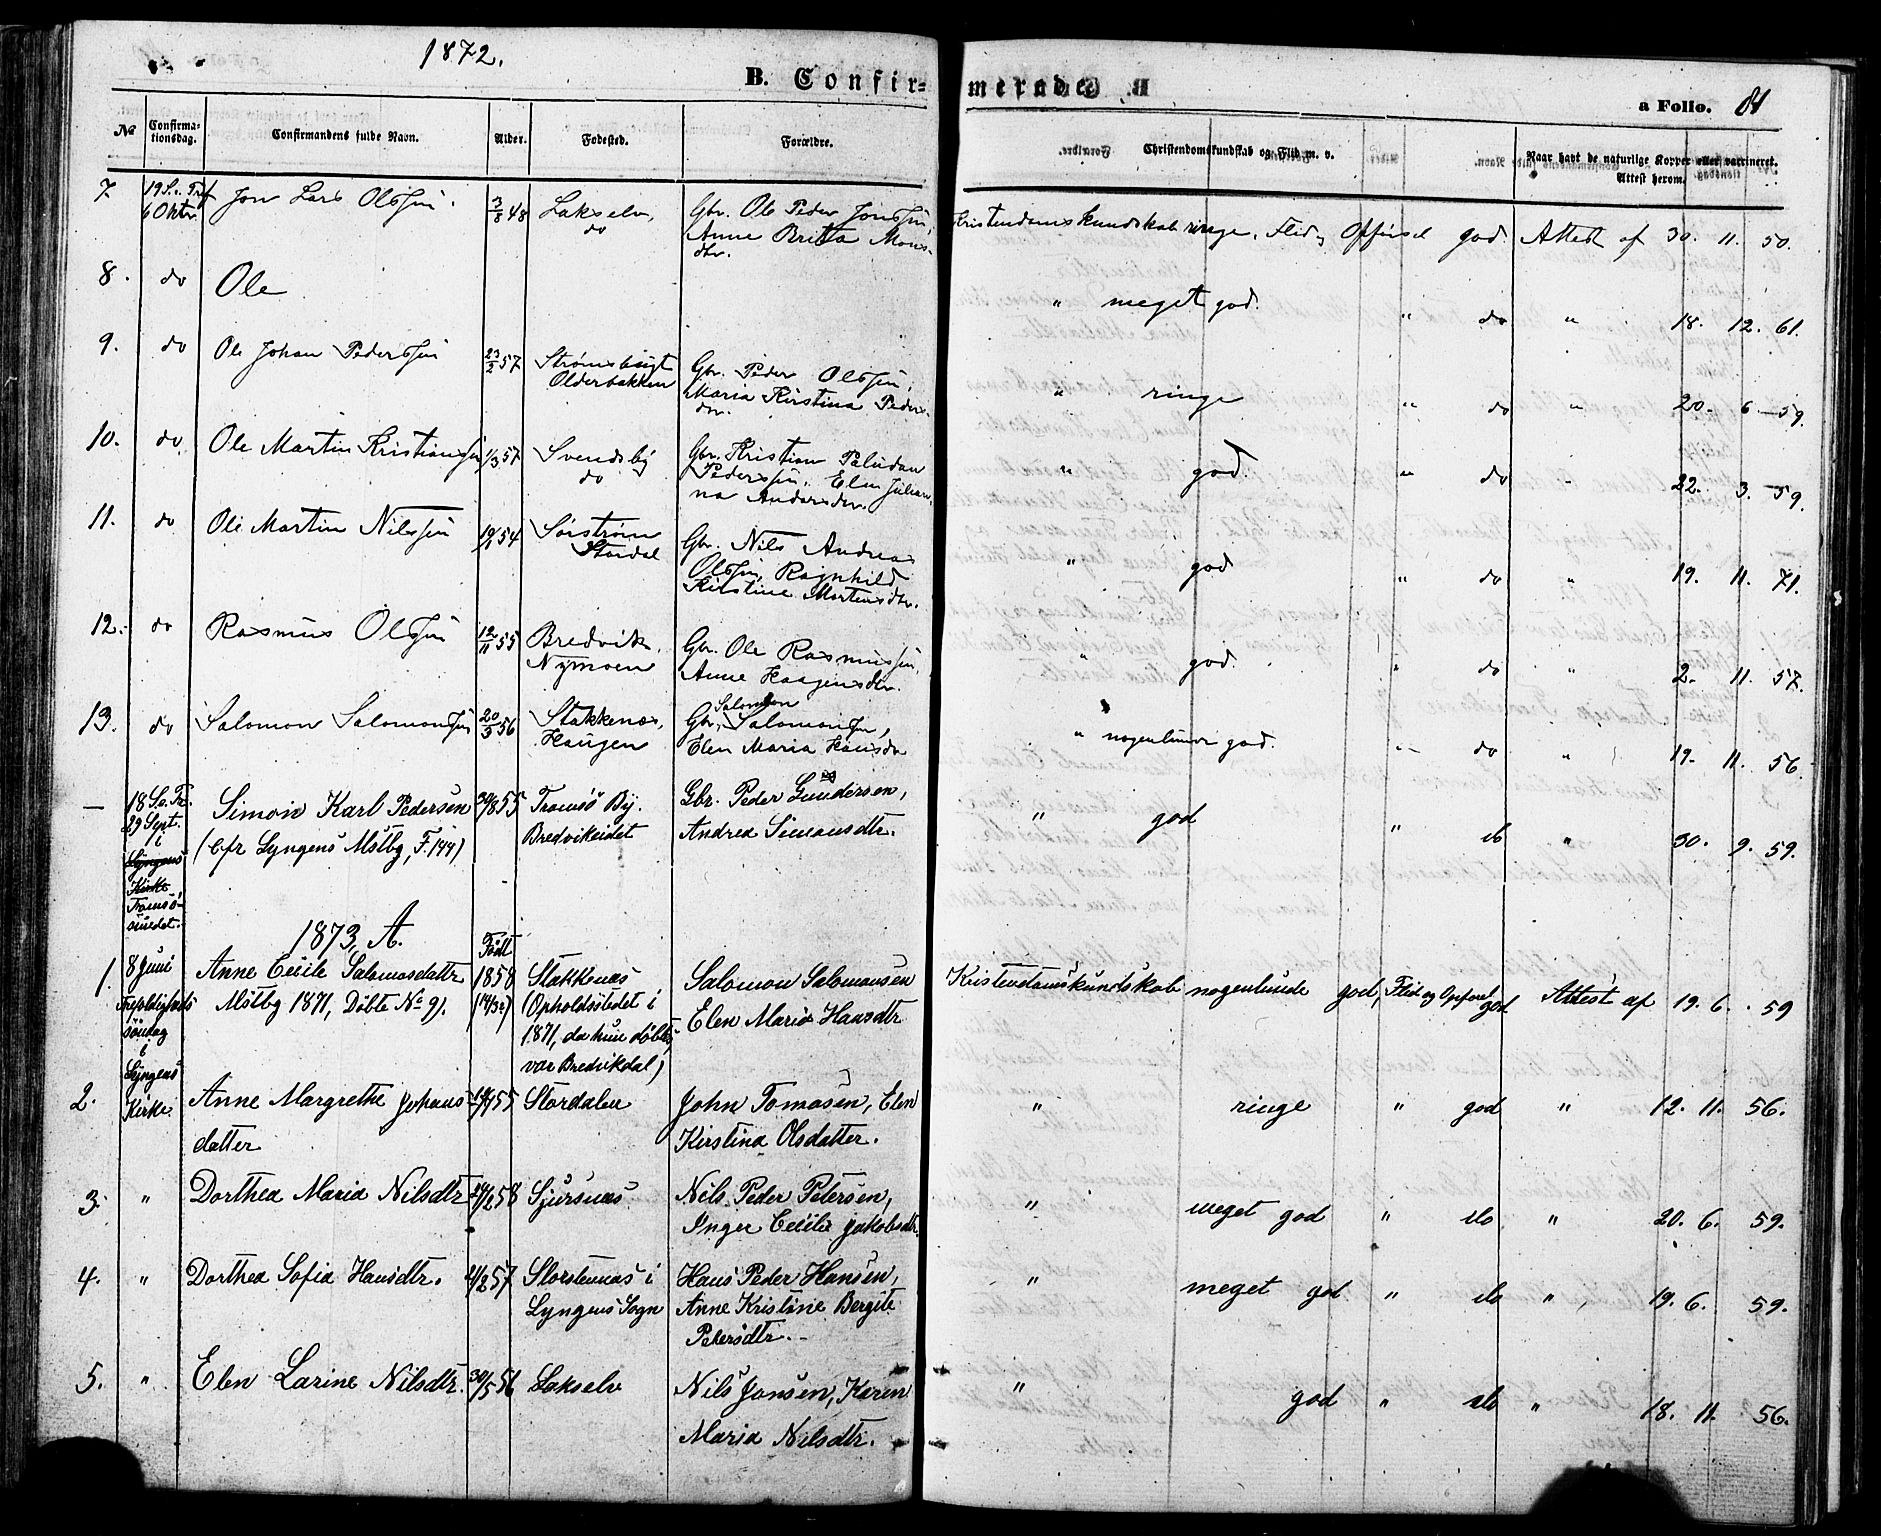 1872.
B. Confir=
merede.
a Folio. 81
No
Confirma-
tionsdag.
Confirmandens fulde Navn.
Alder.
Fødested.
Forældre.
Christendomskundskab og Flid m. v.
Naar havt de naturlige Kopper eller vaccineret.
Attest herom.
7. 19 S. e. Tref. Jon Lars Olssøn. 3/8 48 Lakselv, Gbr. Ole Peder Jonssøn,
6 Oktbr do Anne Britta Mons-
dtr.
Kristendomskundskab ringe, Flid og Opførsel god. Attest af 30. 11. 50.
8. do Ole
" meget god. " do " 18. 12. 61.
9. do Ole Johan Pederssøn 23/2 57 Strømsbugt Gbr. Peder Olssøn,
Olderbakken Maria Kirstina Peders-
dtr.
" ringe " do " 20. 6 — 59.
10. do Ole Martin Kristianssøn 1/3 57 Svendsby Gbr. Kristian Paludan
do Pederssøn, Elen Julian-
na Andersdtr.
" god. " do " 22. 3. — 59.
11. do Ole Martin Nilssøn 54 Sørstrøm Gbr. Nils Andreas
Stordal Olssøn, Ragnhild
Kirstine Mortensdtr.
" god " do " 19. 11. 71.
12. do Rasmus Olssøn 12/11 55 Bredvik, Gbr. Ole Rasmussøn,
Nymoen Anne Haagensdtr.
" god. " do " 2. 11. 57.
13. do Salomon Salomonssøn 20/3 56 Stakkenæs, Gbr. Salomon Salomonssøn,
Haugen Elen Maria Hansdtr
" nogenlunde god. " do " 19. 11. 56.
— 18 S. e. Tr. Simon Karl Pedersen 30/8 55 Tromsö By. Gbr. Peder Gundersen,
29 Sept. (Cfr Lyngens Mstbg, F. 144) Bredvikeidet Andrea Simonsdtr.
i
Lyngens
Kirke
Tromsö-
sundet.
" god " do " 30. 9. 59.
1873, A. Födt
1. 8 Juni Anne Cecilie Salomosdattr 1858 Stakkenæs Salomon Salomonsen
Trefoldigheds Mstbg 1871, Döbte No 9). (14/3) (Opholdsstedet i Elen Maria Hansdtr
söndag 1871, da hun döbtes,
i var Bredvikdal)
Lyngens
Kirke.
Kristendomskundskab nogenlunde god, Flid og Opførsel god Attest af 19. 6. . 59
2. Anne Margrethe Johans- 55 Stordalen John Tomasen, Elen
datter Kirstina Olsdatter.
" ringe " god " 12. 11. 56.
3. " Dorthea Maria Nilsdtr 58 Sjursnæs Nils Peder Petersen,
Inger Cecilie Jakobsdtr.
" meget god " do " 20. 6. 59.
4. " Dorthea Sofia Hansdtr. 57 Storstennæs i Hans Peder Hansen,
Lyngens Sogn Anne Kristine Bergite
Petersdtr.
" meget god. " do " 19. 6. 59.
5. " Elen Larine Nilsdtr. 30/5 56 Lakselv Nils Jonsen, Karen
Maria Nilsdtr.
" god " do " 18. 11. 56.